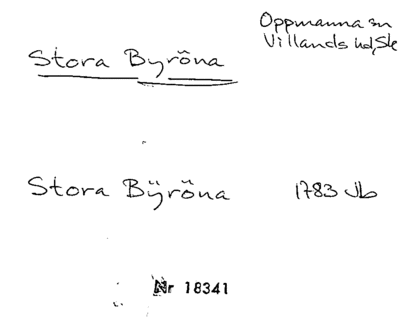 Oppmanna sn
Villands hd, Sk
Stora Byröna
Stora Bÿröna 1783 Jb
Nr 18341